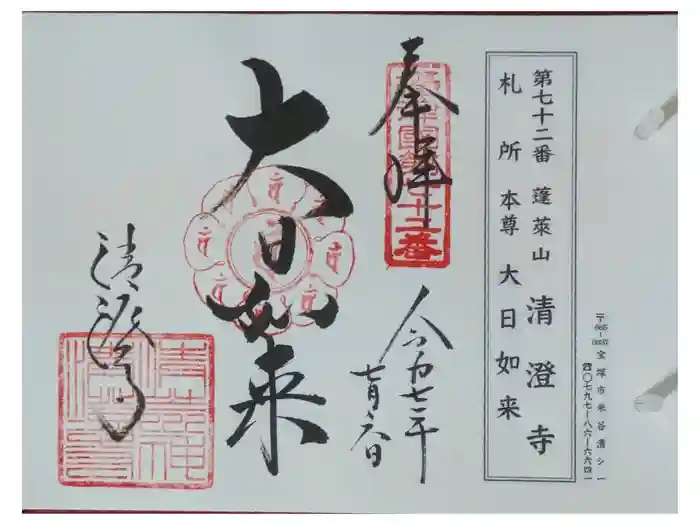 宝塚市米谷清シ一
☎〇七九七ー八六ー六六四一
第七十二番 蓬萊山 清澄寺
札所 本尊 大日如来
奉拝
第七十二番
令和七年
大日如来
清澄寺